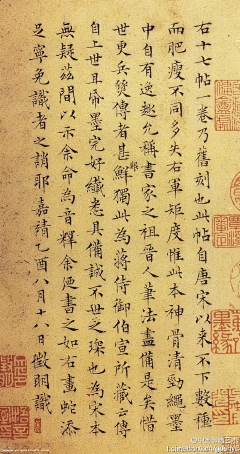 右十七帖一卷乃舊刻也此帖自唐宋以來不下數種
而肥瘦不同多失右軍矩度惟此本神骨清勁繩墨
中自有逸趣允稱書家之祖晉人筆法盡備是矣惜
世更兵燹傳者甚鮮獨此為蔣侍御伯宣所藏云傳
自上世耳帋墨完好纖悉具備誠不世之琛也為宋本
無疑茲間以示余命為音釋余漫書之如右畫蛇添
足寧免識者之誚耶嘉靖乙酉八月十八日徵明識